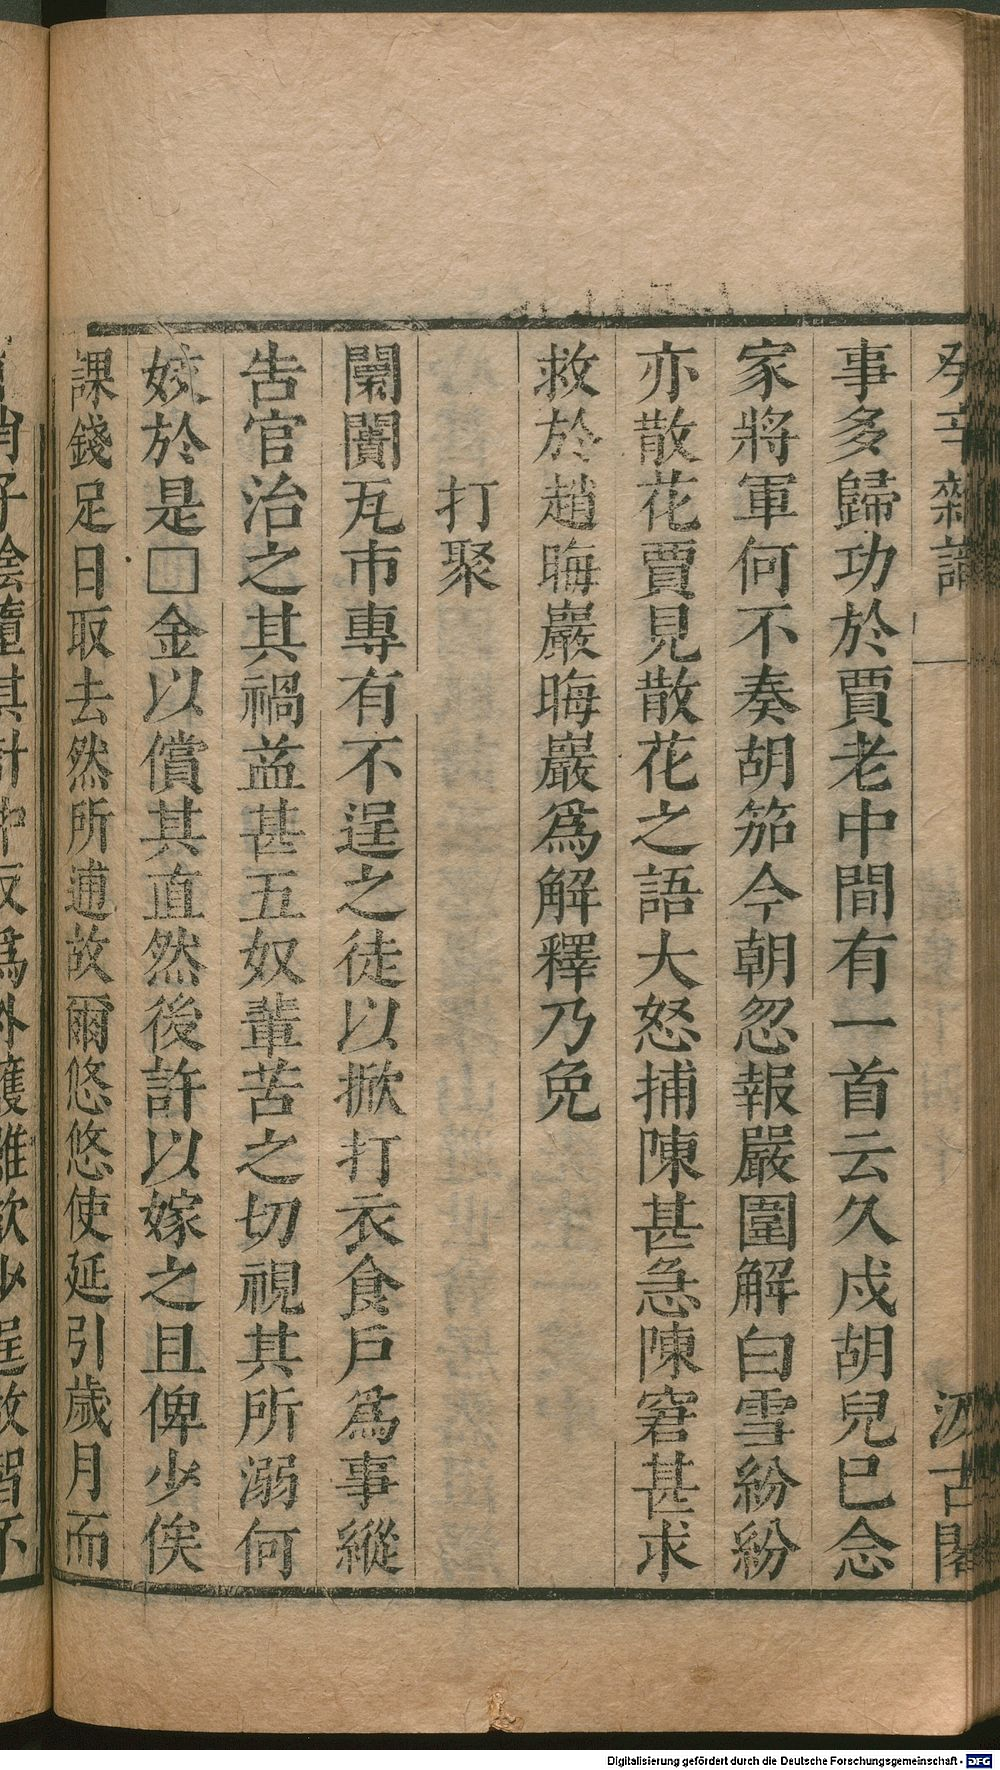 癸辛雜識 一 汲古閣
事多歸功於賈老中間有一首云久戍胡兒巳念
家將軍何不奏胡笳今朝忽報嚴圍解白雪紛紛
亦散花賈見散花之語大怒捕陳甚急陳窘甚求
救於趙晦巖晦巖爲解釋乃免
打聚
闤闠瓦市專有不逞之徒以掀打衣食戶爲事縱
告官治之其禍益甚五奴輩苦之切視其所溺何
妓於是□金以償其直然後許以嫁之且俾少俟
課錢足日取去然所逋故爾悠悠使延引歲月而
隨其計中反爲外護雖欲少逞故智不
Digitalisierung gefördert durch die Deutsche Forschungsgemeinschaft - DFG